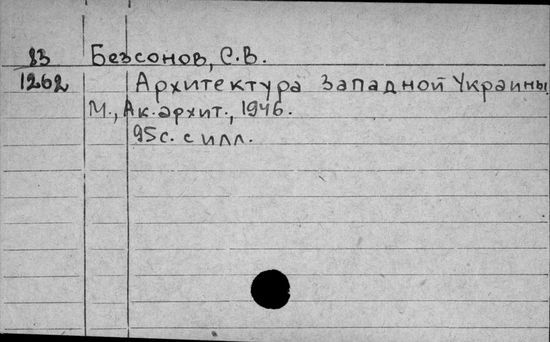 83 Безсонов, С.В.
1262 Архитектура Западной Украины
М., Ак. архит., 1946.
95с. с илл.